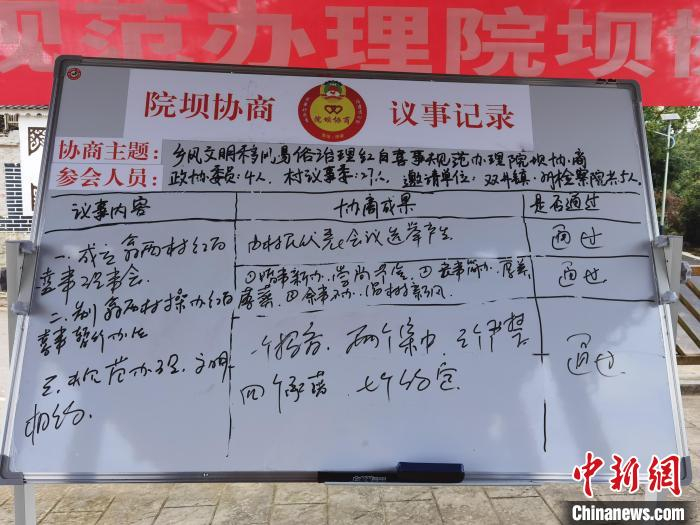 规范办理院坝协
院坝协商
院坝协商
议事记录
协商主题：
乡风文明移风易俗治理红白喜事规范办理院坝协商
参会人员：
政协委员：4人. 村议事委：7人. 邀请单位：双井镇. 检察院共5人.
议事内容
协商成果
是否通过
一. 成立翁西村红白
喜事理事会.
由村民代表会议选举产生.
通过
二. 制 翁西村操办红白
喜事暂行办法
①婚事新办, 崇尚节俭, ②丧事简办, 厚养
薄葬, ③余事不办, 倡树新风.
通过
三. 规范办理. 文明
相约.
一个招呼, 两个集中, 三个严禁
四个承诺, 七个约定.
通过
中新网
Chinanews.com